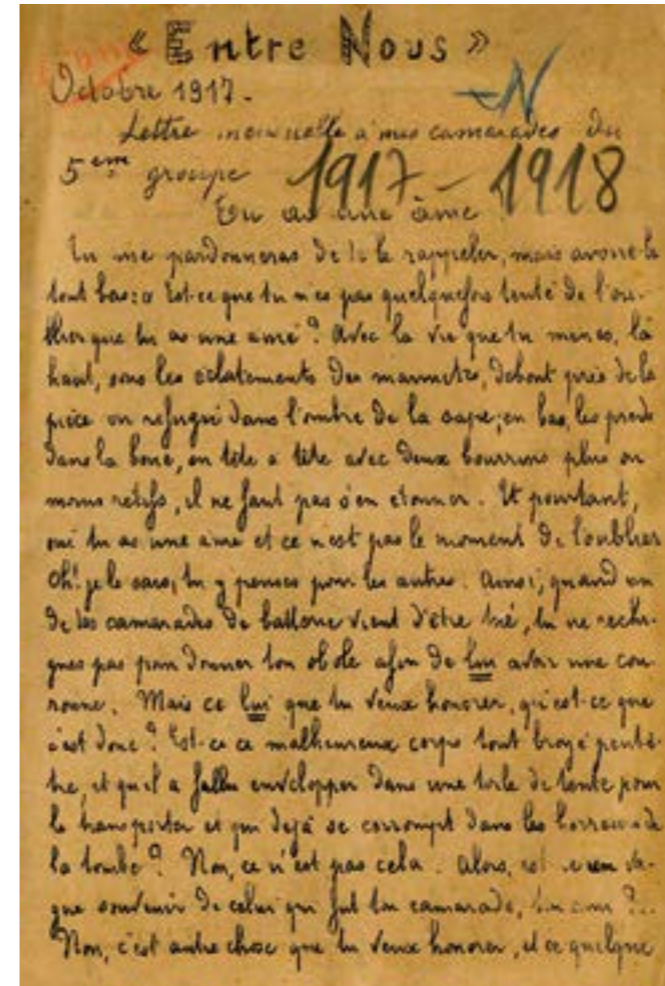 « Entre Nous »
Octobre 1917.
N
Lettre mensuelle à mes camarades du
5ème groupe
1917 - 1918
Tu as une âme
Tu me pardonneras de te le rappeler, mais avoue-le
tout bas: Est-ce que tu n'es pas quelquefois tenté de l'ou-
blier que tu as une âme? Avec la vie que tu mènes, là
haut, sous les éclatements des marmites, debout près de la
pièce ou refugié dans l'ombre de la sape; en bas, les pieds
dans la boue, en tête a tête avec deux bourrins plus ou
moins retifs, il ne faut pas s'en etonner. Et pourtant,
oui tu as une âme et ce n'est pas le moment de l'oublier
Oh! je le sais, tu y penses pour les autres. Ainsi, quand un
de tes camarades de batterie vient d'être tué, tu ne rechi-
gnes pas pour donner ton obole afin de lui avoir une cou-
ronne. Mais ce lui que tu veux honorer, qu'est-ce que
c'est donc? Est-ce ce malheureux corps tout broyé peut-ê-
tre, et qu'il a fallu envelopper dans une toile de tente pour
le transporter et qui déjà se corrompt dans les horreurs de
la tombe? Non, ce n'est pas cela. Alors, est-ce un va-
gue souvenir de celui qui fut ton camarade, ton ami?..
Non, c'est autre chose que tu veux honorer, et ce quelque